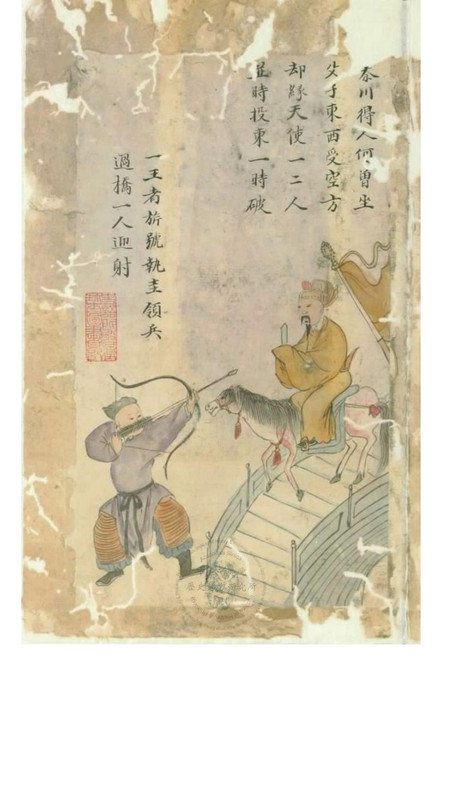 泰川得人何〻曾坐
父子東西受空方
却緣天使一二人
並時投東一時破
一王者旂號執圭領兵
過橋一人迎射